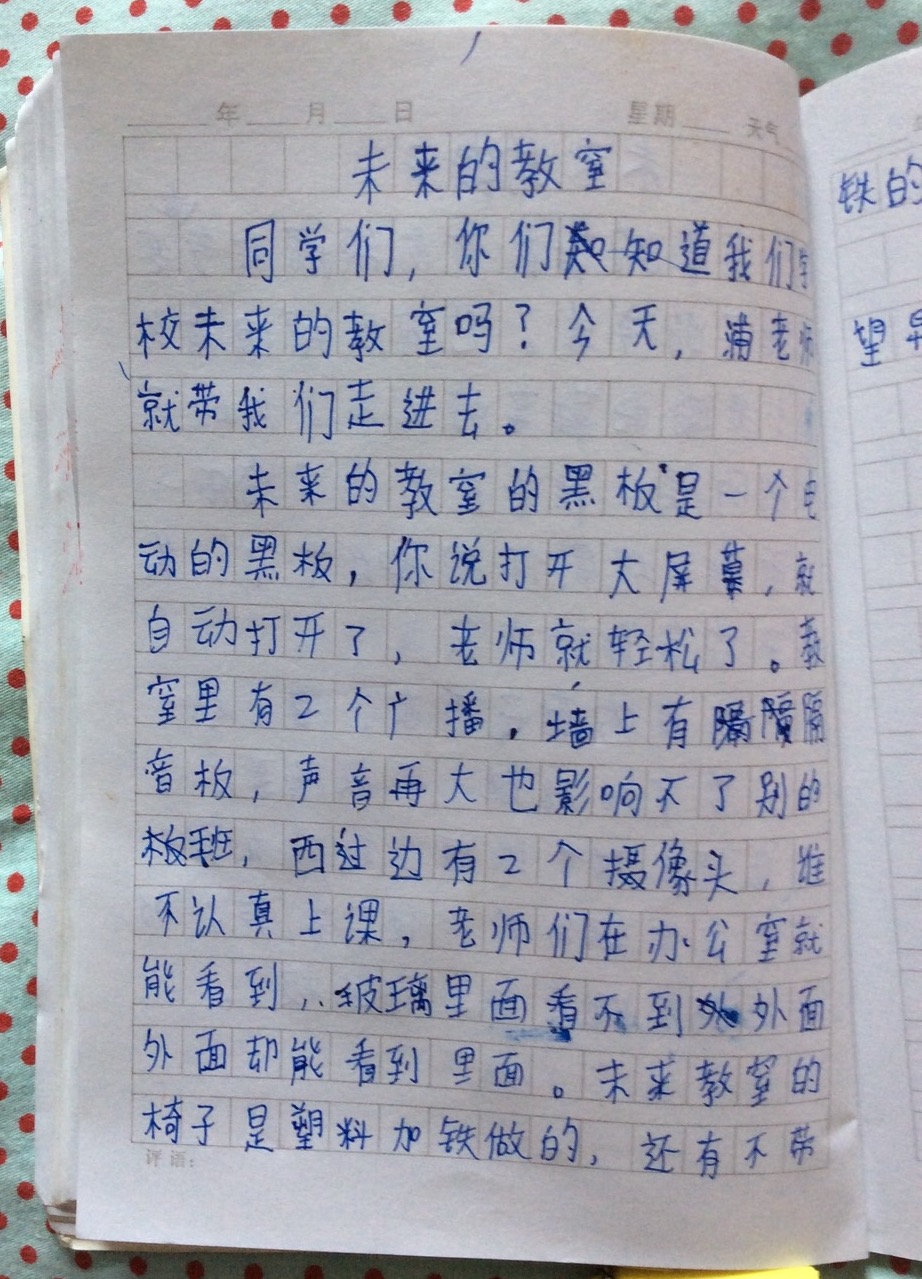 年 月 日 星期 天气
未来的教室
同学们，你们知道我们学
校未来的教室吗？今天，浦老师
就带我们走进去。
未来的教室的黑板是一个电
动的黑板，你说打开大屏幕，就
自动打开了，老师就轻松了。教
室里有2个广播，墙上有隔
音板，声音再大也影响不了别的
班，西过边有2个摄像头，谁
不认真上课，老师们在办公室就
能看到，玻璃里面看不到外面
外面却能看到里面。未来教室的
椅子是塑料加铁做的，还有不带
评语：
铁的
望早